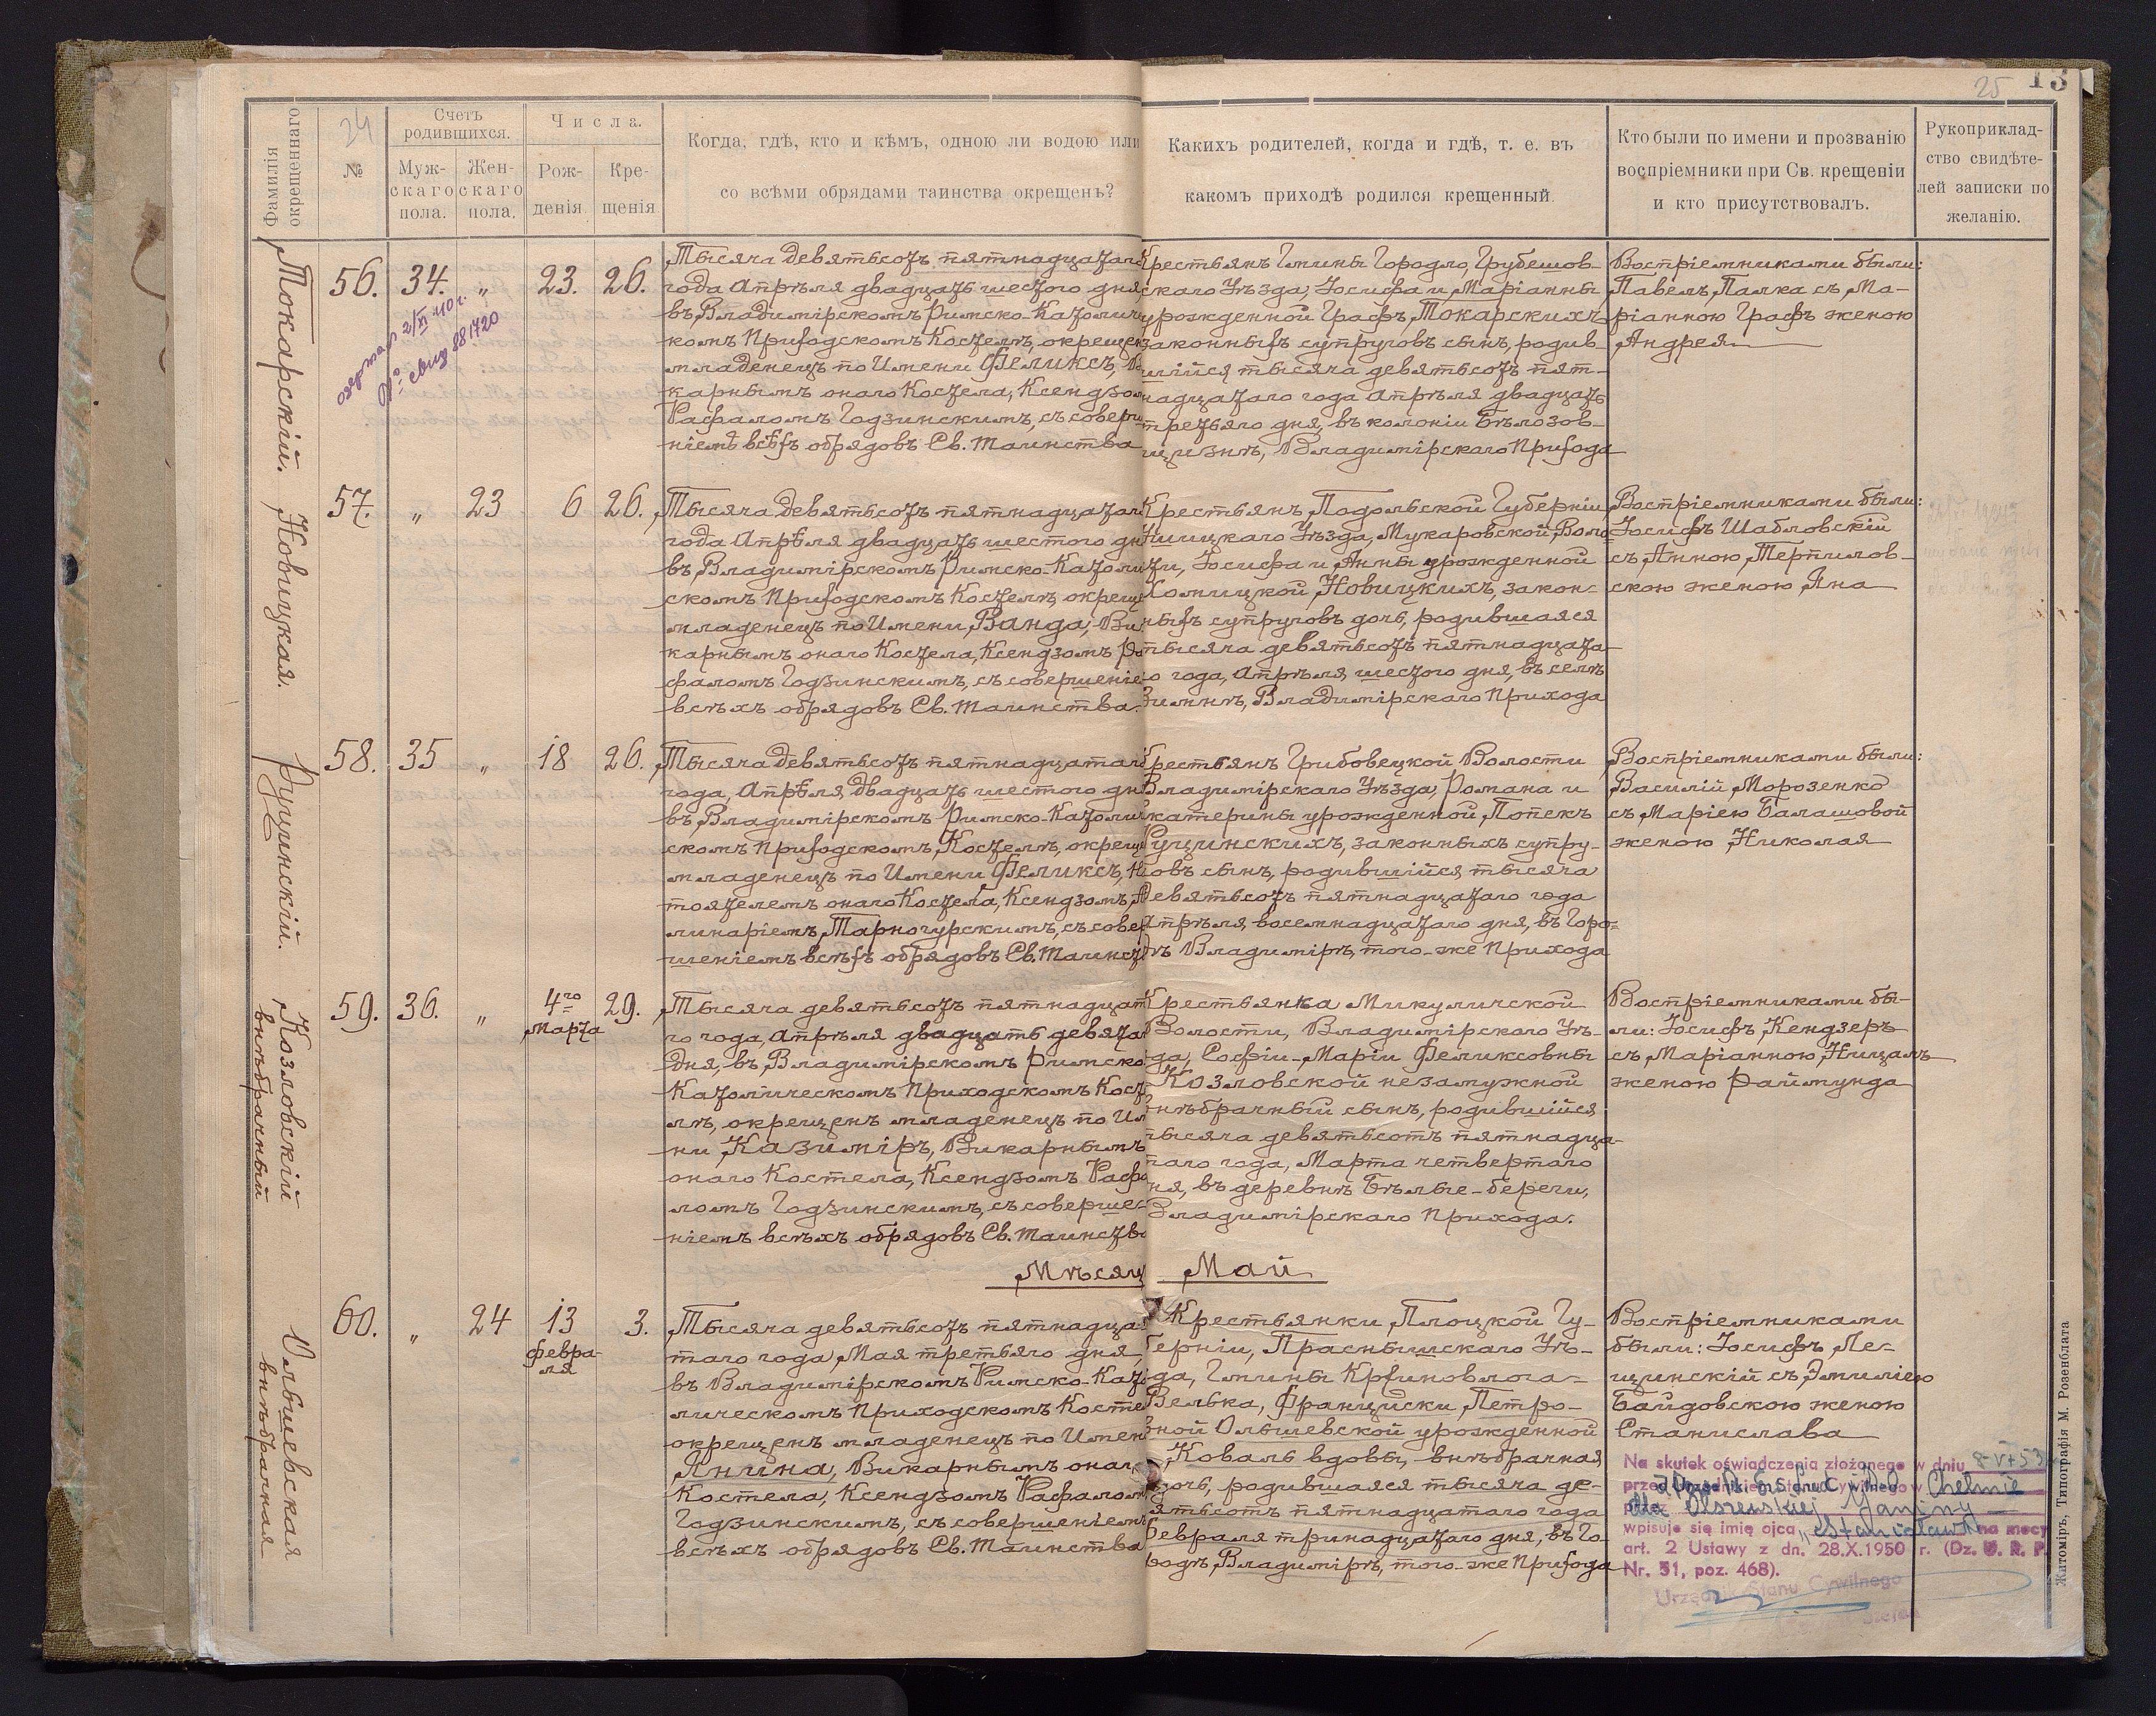 24
25
13
Фамилія
окрещеннаго
№
Счетъ
родившихся.
Муж-
скаго
пола.
Жен-
скаго
пола.
Числа.
Рож-
денія
Кре-
щенія
Когда, гдѣ, кто и кѣмъ, одною ли водою или
со всѣми обрядами таинства окрещенъ?
Какихъ родителей, когда и гдѣ, т. е. въ
какомъ приходѣ родился крещенный.
Кто были по имени и прозванію
воспріемники при Св. крещеніи
и кто присутствовалъ.
Рукоприклад-
ство свидѣте-
лей записки по
желанію.
Токарскій.
56. 34. „ 23. 26.
2/VI 40 г.
№ 881720
Тысяча девятьсотъ пятнадцатаго
года Апрѣля двадцать шестого дня
въ Владимірскомъ Римско-Католичес
комъ Приходскомъ Костелѣ, окрещен
младенецъ по Имени Феликсъ, Ви
карнымъ онаго Костела, Ксендзом
Рафаломъ Годзинскимъ, съ соверше
ніемъ всѣхъ обрядовъ Св. Таинства
Крестьянъ Гмины Городло, Грубешов-
скаго Уѣзда, Іосифа и Маріанны
урожденной Графъ, Токарскихъ
законныхъ супруговъ сынъ, родив-
шійся тысяча девятьсотъ пят-
надцатаго года Апрѣля двадцать
третьяго дня, въ колоніи Бѣлозов-
щизнѣ, Владимірскаго Прихода
Воспріемниками были:
Павелъ Палка съ Ма-
ріанною Графъ женою
Андрея
Новицкая.
57. „ 23 6 26.
Тысяча девятьсотъ пятнадцатаго
года Апрѣля двадцать шестого дн
въ Владимірскомъ Римско-Католич
скомъ Приходскомъ Костелѣ, окреще
младенецъ по Имени, Ванда, Ви
карнымъ онаго Костела, Ксендзомъ Ра
фаломъ Годзинскимъ, съ совершеніе
всѣхъ обрядовъ Св. Таинства.
Крестьянъ Подольской Губерніи
Ушицкаго Уѣзда, Мукаровской, Воло-
сти, Іосифа и Анны урожденной
Хомицкой, Новицкихъ, закон-
ныхъ супруговъ дочь, родившаяся
тысяча девятьсотъ пятнадцата-
го года, Апрѣля шестого дня, въ селѣ
Зимнѣ, Владимірскаго Прихода
Воспріемниками были:
Іосифъ Шабловскій
съ Анною Терпилов-
скою женою Яна
Рущинскій.
58. 35 „ 18 26.
Тысяча девятьсотъ пятнадцатаго
года, Апрѣля двадцать шестого дн
въ Владимірскомъ Римско-Католич
скомъ Приходскомъ, Костелѣ, окреще
младенецъ по Имени Феликсъ, На
стоятелемъ онаго Костела, Ксендзомъ, А
линаріемъ Тарногурскимъ, съ совер
шеніемъ всѣхъ обрядовъ Св. Таинст
Крестьянъ Грибовецкой Волости
Владимірскаго Уѣзда, Романа и
Екатерины урожденной, Попекъ
Рущинскихъ, законныхъ супру-
говъ сынъ, родившійся тысяча
девятьсотъ пятнадцатаго года
Апрѣля восемнадцатаго дня, въ Горо-
дѣ Владимірѣ, того-же Прихода
Воспріемниками были:
Василій Морозенко
съ Маріею Балашовой
женою Николая
Козловскій
внѣбрачный
59. 36. „ 4го
Марта
29.
Тысяча девятьсотъ пятнадцат
го года, Апрѣля двадцать девята
дня, въ Владимірскомъ Римско
Католическомъ Приходскомъ Косте
лѣ, окрещенъ младенецъ по Им
ни, Казиміръ, Викарнымъ
онаго Костела, Ксендзомъ Рафа
ломъ Годзинскимъ, съ соверше-
ніемъ всѣхъ обрядовъ Св. Таинства
Крестьянка Микуличской
Волости, Владимірскаго Уѣ-
зда, Софіи-Маріи Феликсовны
Козловской незамужной
внѣбрачный сынъ, родившійся
тысяча девятьсотъ пятнадца-
таго года, Марта четвертаго
дня, въ деревнѣ Бѣлые-береги,
Владимірскаго Прихода.
Воспріемниками бы-
ли: Іосифъ, Кендзеръ
съ Маріанною, Ницалъ
женою Раймунда
Мѣсяц Май
Ольшевская
внѣбрачная
60. „ 24 13
февра-
ля
3.
Тысяча девятьсотъ пятнадца
таго года Мая третьяго дня,
въ Владимірскомъ Римско-Като
лическомъ Приходскомъ Косте
окрещенъ младенецъ по Имен
Янина, Викарнымъ онаг
Костела, Ксендзомъ Рафалом
Годзинскимъ, съ совершеніемъ
всѣхъ обрядовъ Св. Таинства
Крестьянки, Плоцкой Гу-
берніи, Праснышскаго Уѣ-
зда, Гмины Крживовлога-
Велька, Францишки, Петро-
вной Ольшевской урожденной
Коваль вдовы, внѣбрачная
дочь, родившаяся тысяча де-
вятьсотъ пятнадцатаго года
Февраля тринадцатаго дня, въ Го-
родѣ, Владимірѣ, того-же Прихода
Воспріемниками
были: Іосифъ Ле-
щинскій съ Эмиліею
Байдовскою женою
Станислава
Na skutek oświadczenia złożonego w dniu 8-V-53
przed Urzędnikiem Stanu Cywilnego w Chełmie
dla Olszewskiej Janiny
wpisuje się imię ojca „Stanisław” na mocy
art. 2 Ustawy z dn. 28.X.1950 r. (Dz. U. R. P.
Nr. 51, poz. 468).
Urzędnik Stanu Cywilnego
Житоміръ, Типографія М. Розенблата